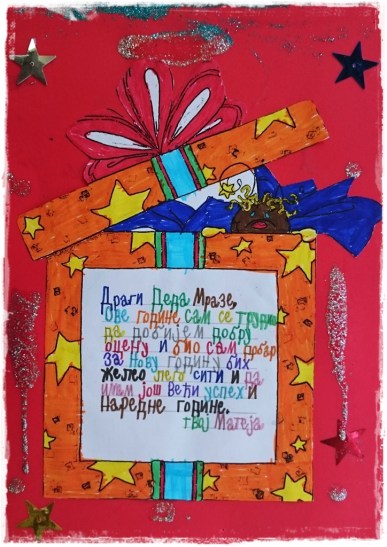 Драги Деда Мразе,
Ове године сам се трудио
да добијем добру
оцену и био сам добар
за нову годину бих
желео лего сити и да
имам још већи успех и
наредне године.
твој Матеја